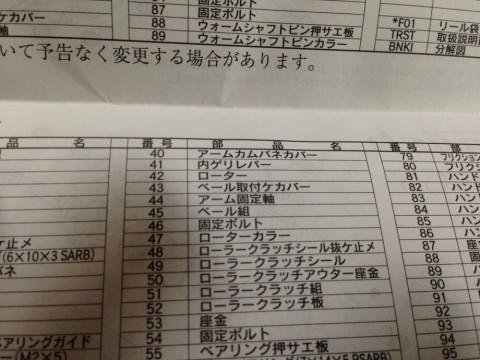 87 固定ボルト
88 ウォームシャフトピン押サエ板
89 ウォームシャフトピンカラー
ケカバー
軸
*F01 リール袋
TRST 取扱説明
BNKI 分解図
いて予告なく変更する場合があります。
品 名 番 号 部 品 名 番 号 部
40 アームカムバネカバー 79 フリクション
41 内ゲリレバー 80 フリクシ
42 ローター 81 ハンド
43 ベール取付ケカバー 82 ハン
44 アーム固定軸 83 ハン
45 ベール組 84 ハン
46 固定ボルト 85 ハン
ケ止メ 47 ローターカラー 86 ハン
(6×10×3 SARB) 48 ローラークラッチシール抜ケ止メ 87 座金
バネ 49 ローラークラッチシール 88 固
50 ローラークラッチアウター座金 89 ハ
51 ローラークラッチ組 90 ハ
52 ローラークラッチ板 91
53 座金 92
ベアリングガイド 54 固定ボルト 94
(M2×5) 55 ベアリング押サエ板 95